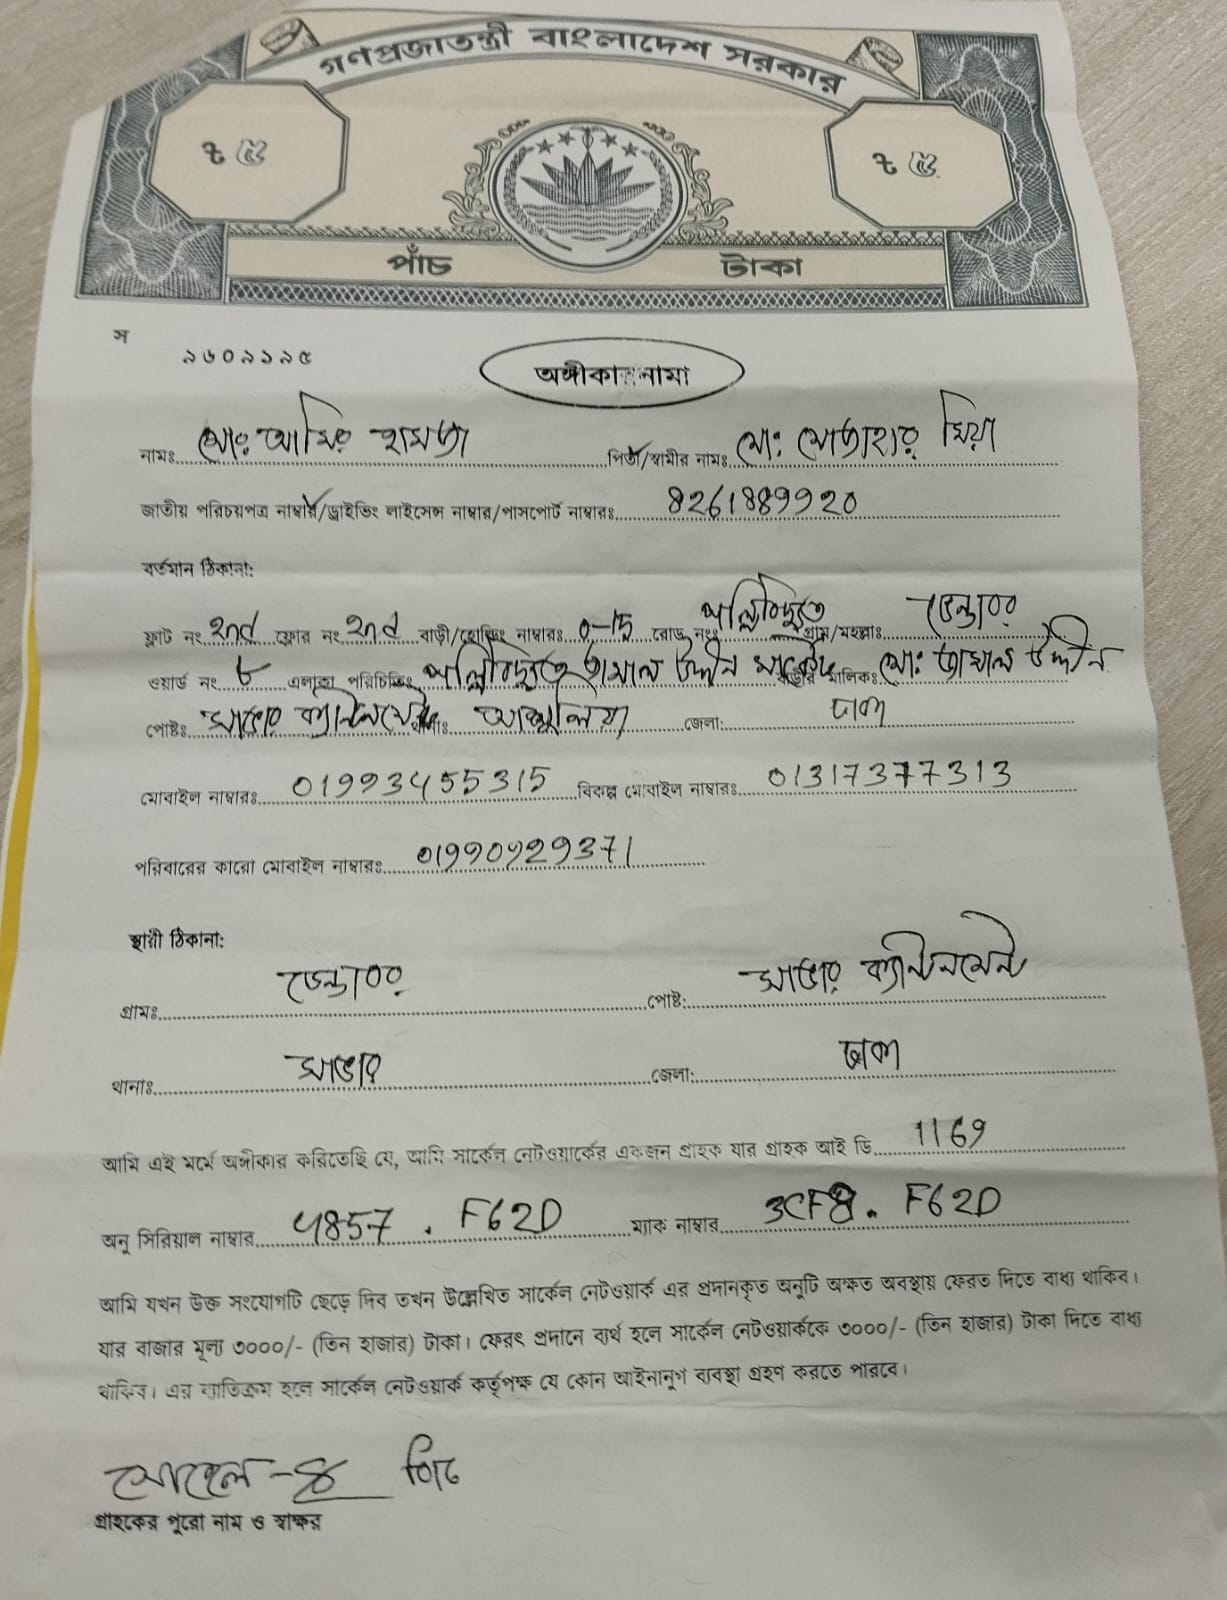 গণপ্রজাতন্ত্রী বাংলাদেশ সরকার
৳ ৫ ৳ ৫
পাঁচ টাকা
স
৯৬০৯৯৯৫
অঙ্গীকারনামা
নামঃ মোঃ আমির হামজা পিতা/স্বামীর নামঃ মো: মোতাহার মিয়া
জাতীয় পরিচয়পত্র নাম্বার/ড্রাইভিং লাইসেন্স নাম্বার/পাসপোর্ট নাম্বারঃ 8261889920
বর্তমান ঠিকানা:
ফ্লাট নং 2nd ফ্লোর নং 2nd বাড়ী/হোল্ডিং নাম্বারঃ রোড নংঃ পল্লিবিদ্যুতে গ্রাম/মহল্লাঃ ডেন্ডাবর
ওয়ার্ড নং ৮ এলাকা পরিচিতিঃ পল্লিবিদ্যুতে জামাল উদ্দীন মার্কেট বাড়ীর মালিকঃ মো: জামাল উদ্দীন
পোষ্টঃ সাভার ক্যান্টনমেন্ট থানাঃ আশুলিয়া জেলা: ঢাকা
মোবাইল নাম্বারঃ 01993455315 বিকল্প মোবাইল নাম্বারঃ 01317377313
পরিবারের কারো মোবাইল নাম্বারঃ 01990929371
স্থায়ী ঠিকানা:
গ্রামঃ ডেন্ডাবর পোষ্ট: সাভার ক্যান্টনমেন্ট
থানাঃ সাভার জেলা: ঢাকা
আমি এই মর্মে অঙ্গীকার করিতেছি যে, আমি সার্কেল নেটওয়ার্কের একজন গ্রাহক যার গ্রাহক আই ডি 1169
অনু সিরিয়াল নাম্বার 4857 . F62D ম্যাক নাম্বার 3CF8. F62D
আমি যখন উক্ত সংযোগটি ছেড়ে দিব তখন উল্লেখিত সার্কেল নেটওয়ার্ক এর প্রদানকৃত অনুটি অক্ষত অবস্থায় ফেরত দিতে বাধ্য থাকিব।
যার বাজার মূল্য ৩০০০/- (তিন হাজার) টাকা। ফেরৎ প্রদানে ব্যর্থ হলে সার্কেল নেটওয়ার্ককে ৩০০০/- (তিন হাজার) টাকা দিতে বাধ্য
থাকিব। এর ব্যতিক্রম হলে সার্কেল নেটওয়ার্ক কর্তৃপক্ষ যে কোন আইনানুগ ব্যবস্থা গ্রহণ করতে পারবে।
গ্রাহকের পুরো নাম ও স্বাক্ষর